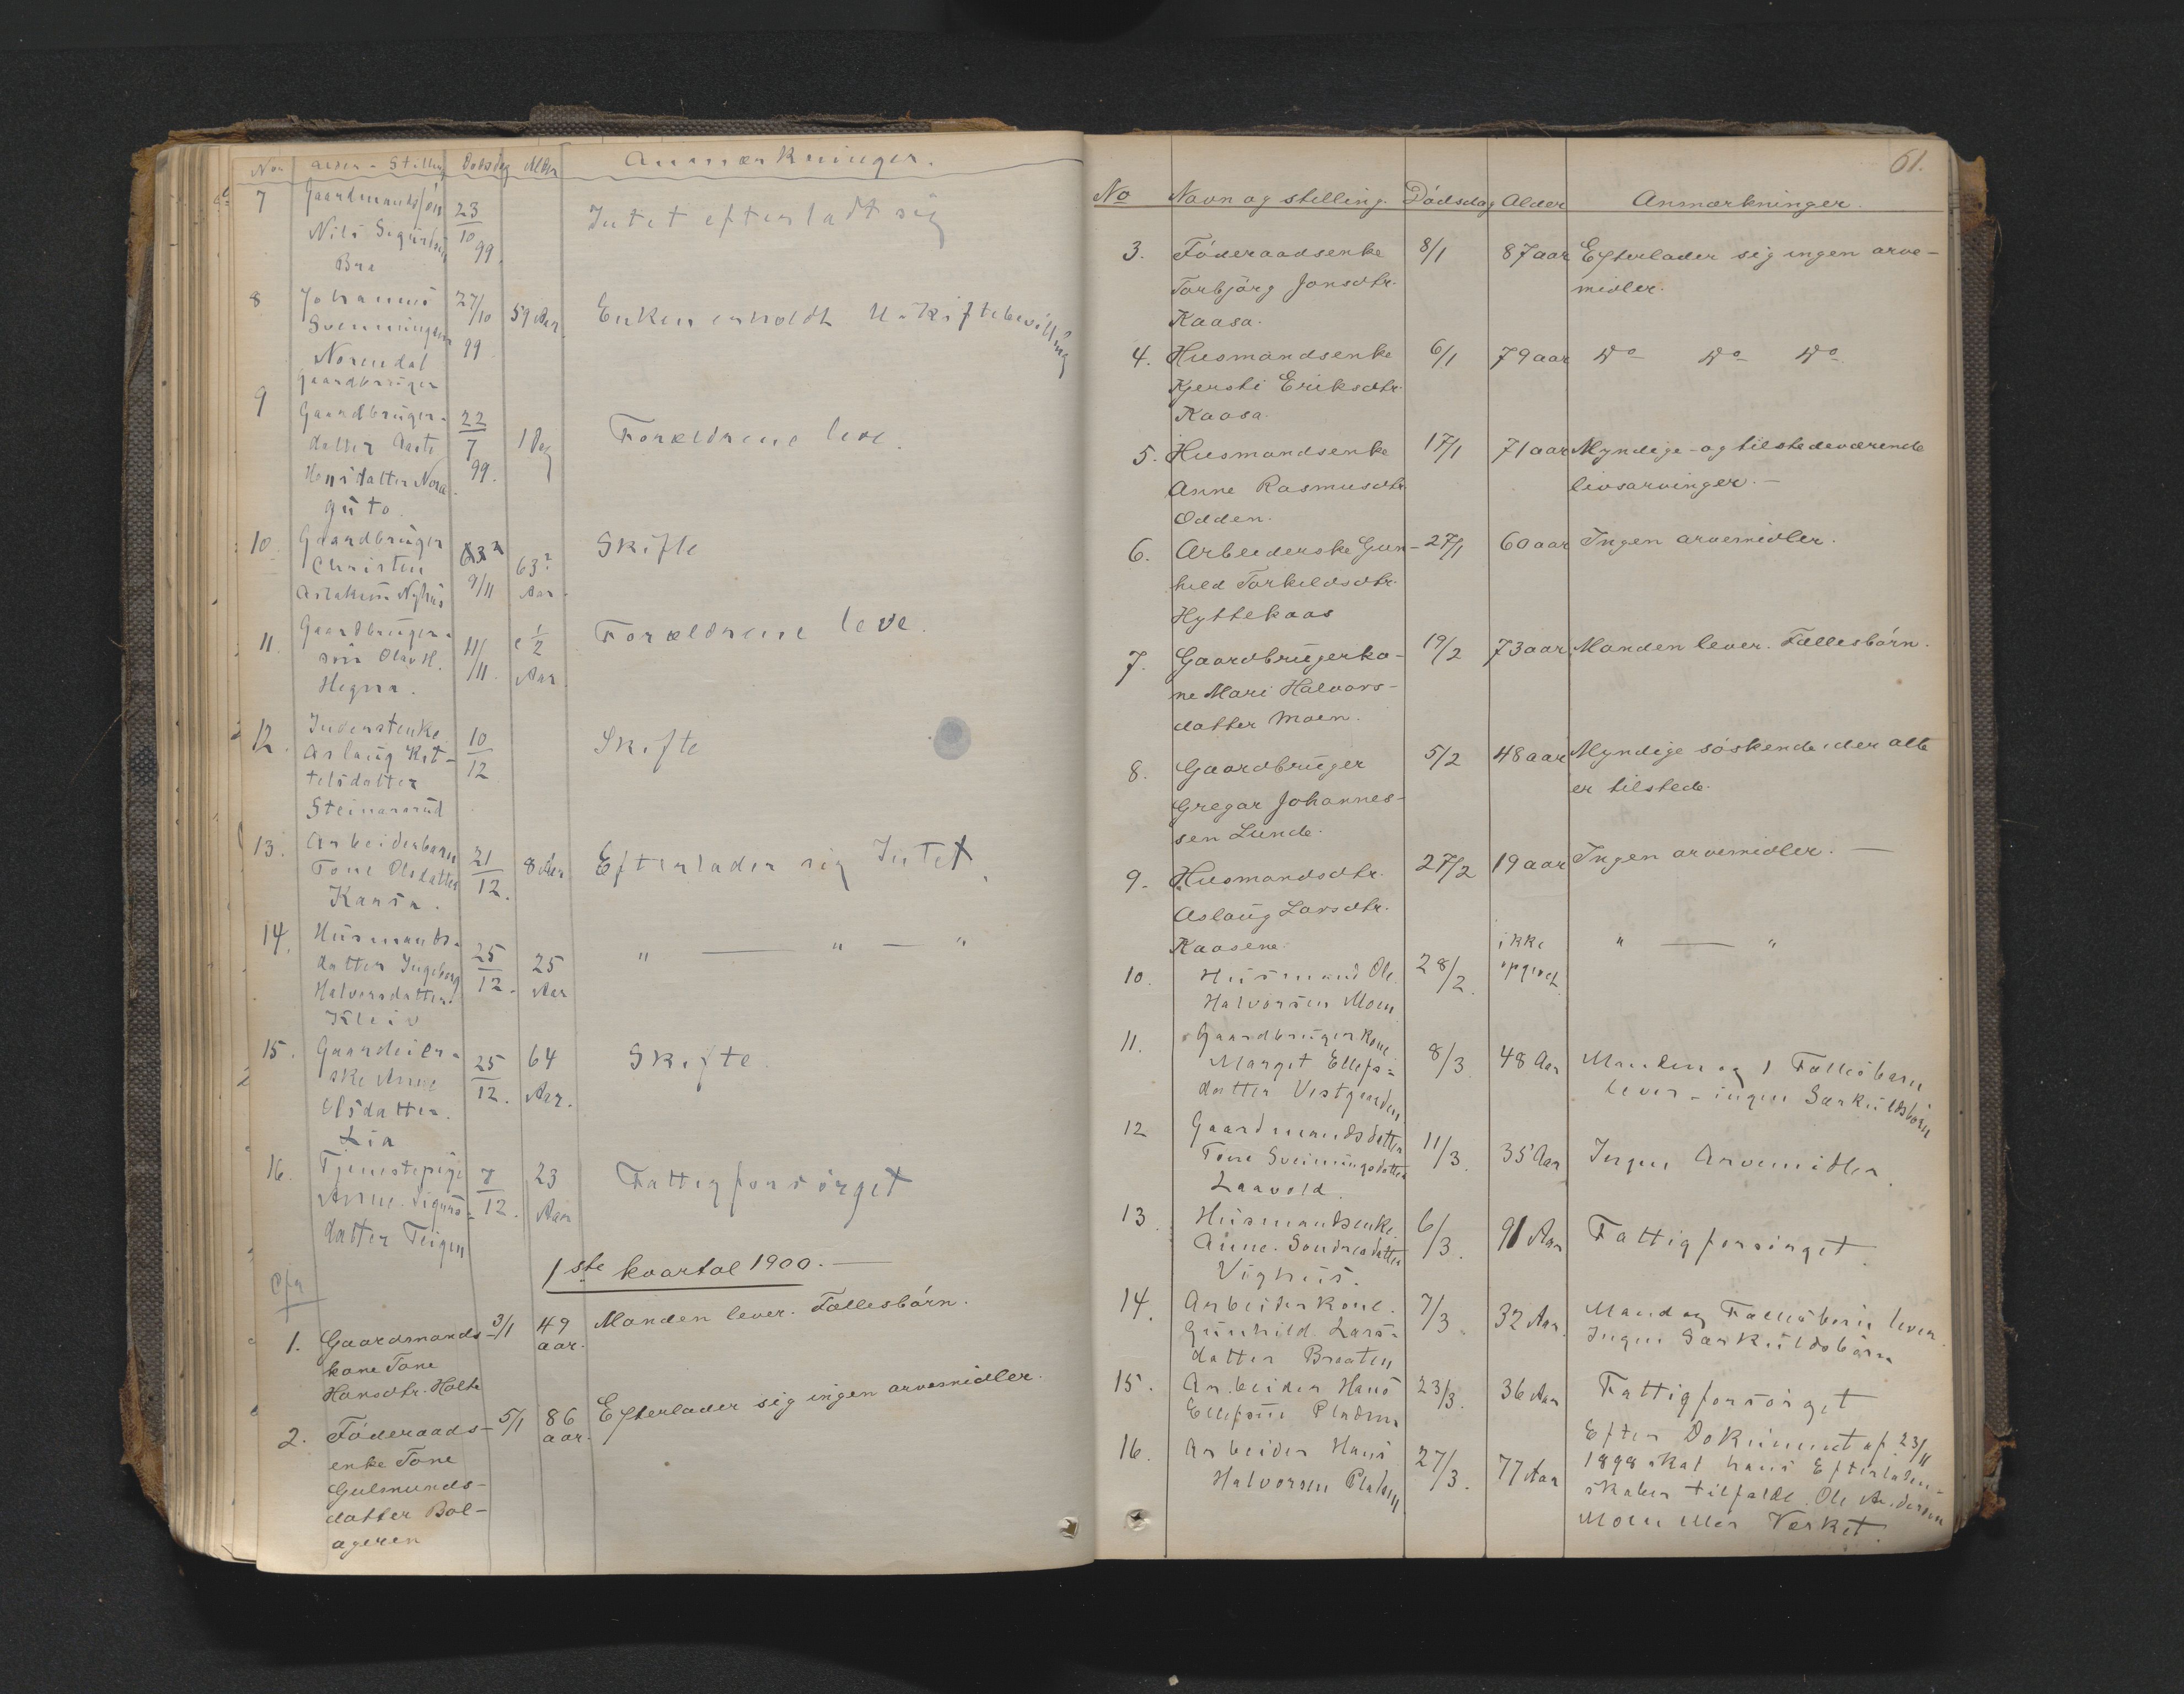 No Alder - Stilling Dødsdag Alder Anmærkninger.
7 Gaardmandssøn 23/10 99. Intet efterladt sig
Nils Sigurdsen
Bra
8 Johannes 27/10 99 59 Aar Enken erholdt Uskiftebevilling
Svenningsen
Norendal
Gaardbrüger
9 Gaardbrüger- 22/7 99. 1 Dag Forældrene leve.
datter Aaste
Hansdatter Nora
güto.
10. Gaardbrüger 9/11 63? Aar. Skifte
Christen
Aslaksen Nyhus
11. Gaardbrüger- 11/11. 1/2 Aar. Forældrene leve.
søn Olav H.
Hegna.
12. Inderstenke 10/12 Skifte
Aslaug Kit-
telsdatter
Steinarsrud
13. Arbeiderbarn 21/12. 8 Aar Efterlader sig Intet.
Tone Olsdatter
Kaasa.
14. Husmands- 25/12. 25 Aar " — " — "
datter Ingeborg
Halvorsdatter
Kleiv
15. Gaardeier- 25/12. 64 Aar. Skifte
ske Anne
Olsdatter.
Lia
16. Tjenestepige 7/12. 23 Aar Fattigforsørget
Anne Sigurds-
datter Teigen
1ste kvartal 1900. —
1. Gaardmands- 3/1 49 aar. Manden lever. Fællesbørn.
kone Tone
Hansdtr. Holte
2. Føderaads- 5/1 86 aar. Efterlader sig ingen arvemidler.
enke Tone
Gulmunds-
datter Bol-
ageren
61.
No Navn og stilling. Dødsdag Alder Anmærkninger.
3. Føderaadsenke 8/1 87 aar Efterlader sig ingen arve-
Torbjørg Jonsdtr. midler.
Kaasa.
4. Husmandsenke 6/1 79 aar Do Do Do
Kjersti Eriksdtr.
Kaasa.
5. Husmandsenke 17/1 71 aar Myndige - og tilstedeværende
Anne Rasmusdtr. livsarvinger. —
Odden.
6. Arbeiderske Gun- 27/1 60 aar Ingen arvemidler.
hild Torkildsdtr.
Hyttekaas
7. Gaardbrügerko- 19/2 73 aar Manden lever. Fællesbørn.
ne Mari Halvors-
datter Moen.
8. Gaardbrüger 5/2 48 aar Myndige søskende, der alle
Gregar Johannes- er tilstede.
sen Lunde.
9. Husmandsdtr. 27/2 19 aar Ingen arvemidler. —
Aslaug Larsdtr.
Kaasene.
10. Husmand Ole 28/2. ikke opgivet " — "
Halvorsen Moen
11. Gaardbrügerkone 8/3 48 Aar Manden og 1 Fællesbarn
Margit Ellefs- lever - ingen Særkuldsbørn
datter Vestgarden
12 Gaardmandsdatter 11/3. 35 Aar Ingen Arvemidler.
Tone Sveinungsdatter
Laavold.
13. Husmandsenke 6/3. 91 Aar Fattigforsørget
Anne Sondresdatter
Vighus.
14. Arbeiderkone. 7/3. 32 Aar. Mand og Fællesbørn lever.
Gunhild Lars- Ingen Særkuldsbørn
datter Braaten
15. Arbeider Hans 23/3. 36 Aar Fattigforsørget
Ellefsen Pladsen
16. Arbeider Hans 27/3. 77 Aar Efter Dokument af 23/11
Halvorsen Pladsen 1898 skal hans Efterladen-
skaber tilfalde Ole Andersen
Moen eller Værket.